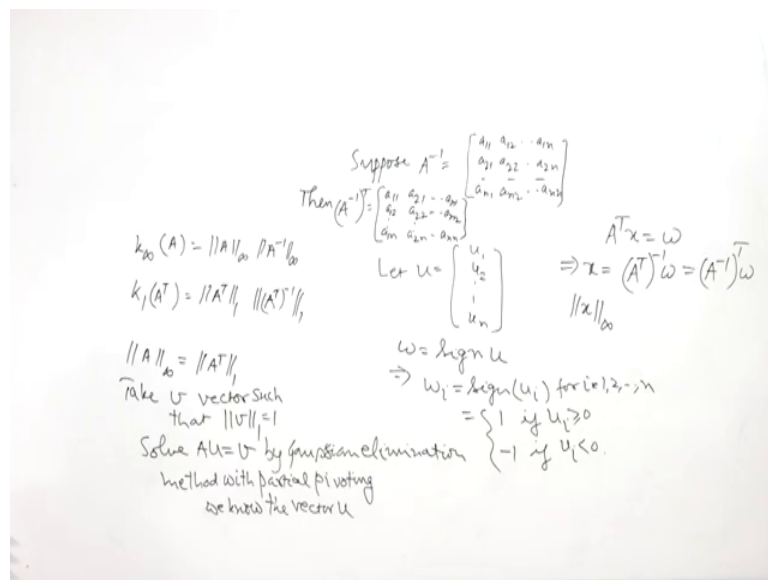 Suppose A⁻¹ = [a₁₁ a₁₂ ·· a₁ₙ
a₂₁ a₂₂ · a₂ₙ
aₙ₁ aₙ₂ ·· aₙₙ]
Then (A⁻¹)ᵀ = [a₁₁ a₂₁ ·· aₙ₁
a₁₂ a₂₂ -·· aₙ₂
a₁ₙ a₂ₙ · aₙₙ]
k∞(A) = ||A||∞ ||A⁻¹||∞
k₁(Aᵀ) = ||Aᵀ||₁ ||(Aᵀ)⁻¹||₁
||A||∞ = ||Aᵀ||₁
Take v vector such
that ||v||₁ = 1
Solve Au = v by Gaussian elimination
method with partial pivoting
we know the vector u
Let u = [u₁
u₂
:
uₙ]
w = sign u
⇒ wᵢ = sign(uᵢ) for i=1,2,-,n
= { 1 if uᵢ ≥ 0
-1 if uᵢ < 0.
Aᵀx = w
⇒ x = (Aᵀ)⁻¹w = (A⁻¹)ᵀw
||x||∞